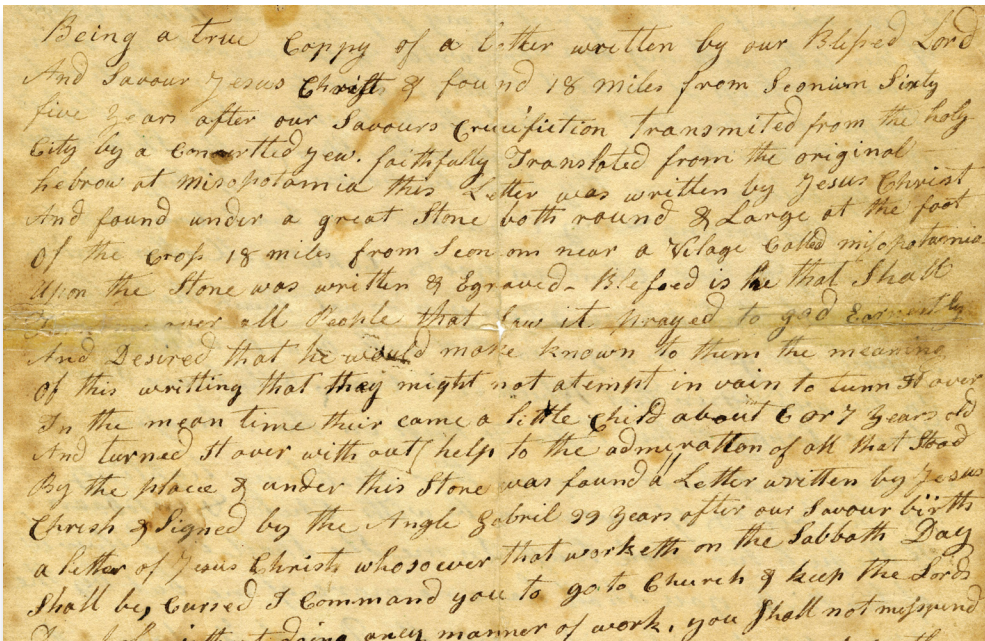 Being a true Coppy of a letter written by our Blessed Lord
And Savour Jesus Christ & found 18 miles from Seonium Sixty
five Years after our Savours Crucifiction transmited from the holy
City by a Convertted Jew. faithfully Translated from the original
hebrew at misopotamia this Letter was written by Jesus Christ
And found under a great Stone both round & Large at the foot
Of the Cross 18 miles from Seoniom near a Vilage Called misopotamia
Upon the Stone was written & Egraved - Blessed is he that Shall
over all People that saw it prayed to god Earnestly
And Desired that he would make known to them the meaning
Of this writting that they might not atempt in vain to turn It over
In the mean time their came a little Child about 6 or 7 years old
And turned It over with out help to the admeration of all that Stood
By the place & under this Stone was found a Letter written by Jesus
Chrish & Signed by the Angle Gabril 99 years after our Savour birth
a letter of Jesus Christs whosoever that worketh on the Sabbath Day
Shall be, Cursed I Command you to go to Church & keep the Lords
doing aney manner of work, you Shall not misspend